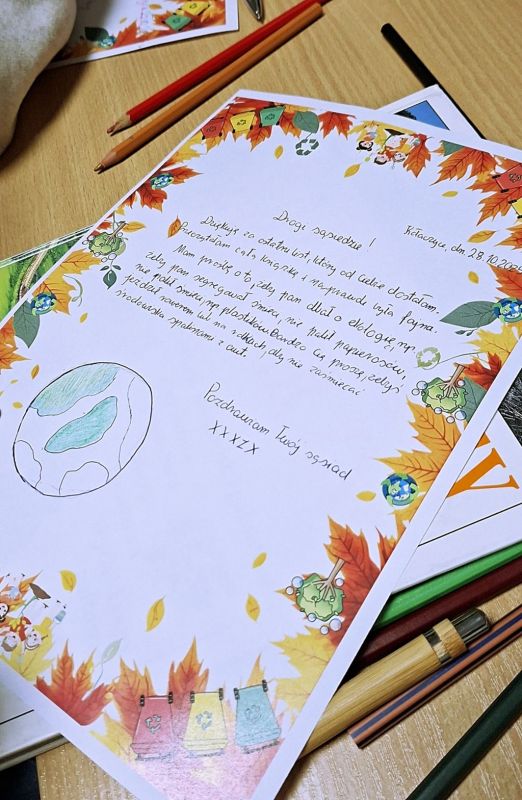 Kołaczyce, dn. 28.10.202
Drogi sąsiedzie!
Dziękuję za ostatni list, który od Ciebie dostałam.
Przeczytałam całą książkę i naprawdę była fajna.
Mam prośbę o to, żeby pan dbał o ekologię, np.
żeby pan segregował śmieci, nie palił papierosów,
nie palił śmieci np. plastików. Bardzo Cię proszę, żebyś
jeździł rowerem lub na rolkach, aby nie zaśmiecać
środowiska spalinami z aut.
Pozdrawiam Twój sąsiad
XXXZX
V